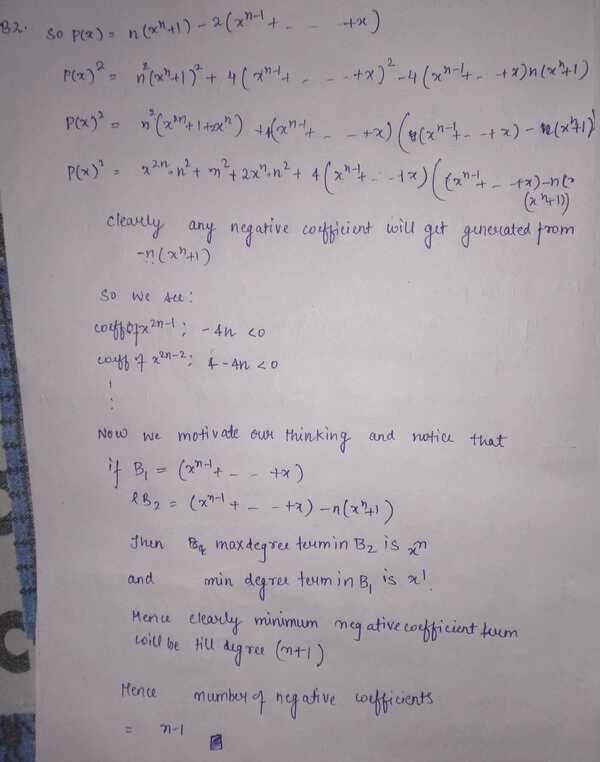 B2. So P(x) = n(xⁿ+1) - 2(xⁿ⁻¹+ - - - +x)
P(x)² = n²(xⁿ+1)² + 4(xⁿ⁻¹+ - - - +x)² - 4(xⁿ⁻¹+ - - +x)n(xⁿ+1)
P(x)² = n²(x²ⁿ+1+2xⁿ) + 4(xⁿ⁻¹+ - - - +x)((xⁿ⁻¹+ - - +x) - n(xⁿ+1))
P(x)² = x²ⁿ·n² + n² + 2xⁿ·n² + 4(xⁿ⁻¹+ - - +x)((xⁿ⁻¹+ - - +x) - n(x
(xⁿ+1))
clearly any negative coefficient will get generated from
-n(xⁿ+1)
So we see:
coeff of x²ⁿ⁻¹ ; -4n <0
coeff of x²ⁿ⁻² ; 4 - 4n <0
Now we motivate our thinking and notice that
if B₁ = (xⁿ⁻¹+ - - - +x)
& B₂ = (xⁿ⁻¹+ - - - +x) - n(xⁿ+1)
Then max degree term in B₂ is xⁿ
and min degree term in B₁ is x¹.
Hence clearly minimum negative coefficient term
will be till degree (n+1)
Hence number of negative coefficients
= n-1